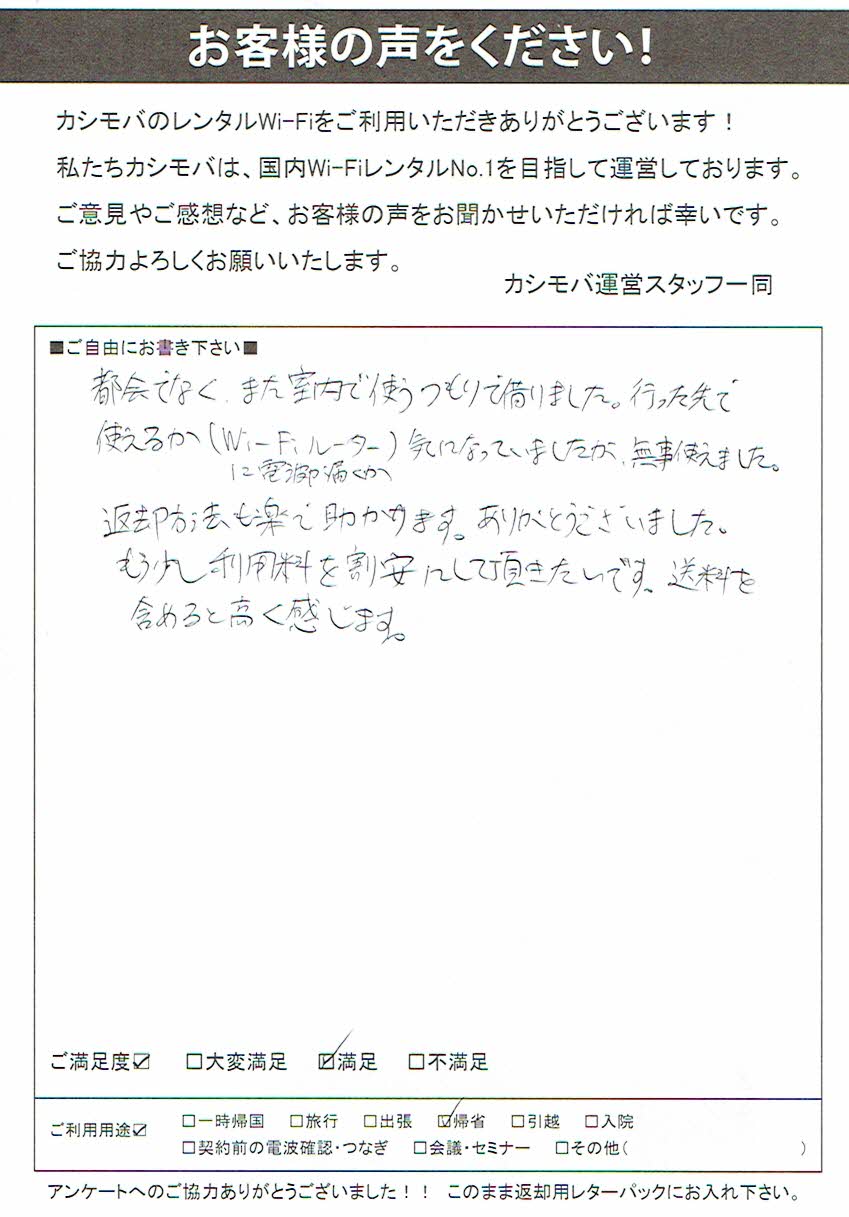 お客様の声をください!
カシモバのレンタルWi-Fiをご利用いただきありがとうございます！
私たちカシモバは、国内Wi-FiレンタルNo.1を目指して運営しております。
ご意見やご感想など、お客様の声をお聞かせいただければ幸いです。
ご協力よろしくお願いいたします。
カシモバ運営スタッフ一同
■ご自由にお書き下さい■
都会でなく、また室内で使うつもりで借りました。行った先で
使えるか(Wi-Fiルーター)気になっていましたが、無事使えました。
に電波届くか
返却方法も楽で助かります。ありがとうございました。
もう少し利用料を割安にして頂きたいです。送料を
含めると高く感じます。
ご満足度☑ □大変満足 ☑満足 □不満足
ご利用用途☑ □一時帰国 □旅行 □出張 ☑帰省 □引越 □入院
□契約前の電波確認・つなぎ □会議・セミナー □その他( )
アンケートへのご協力ありがとうございました！！ このまま返却用レターパックにお入れ下さい。